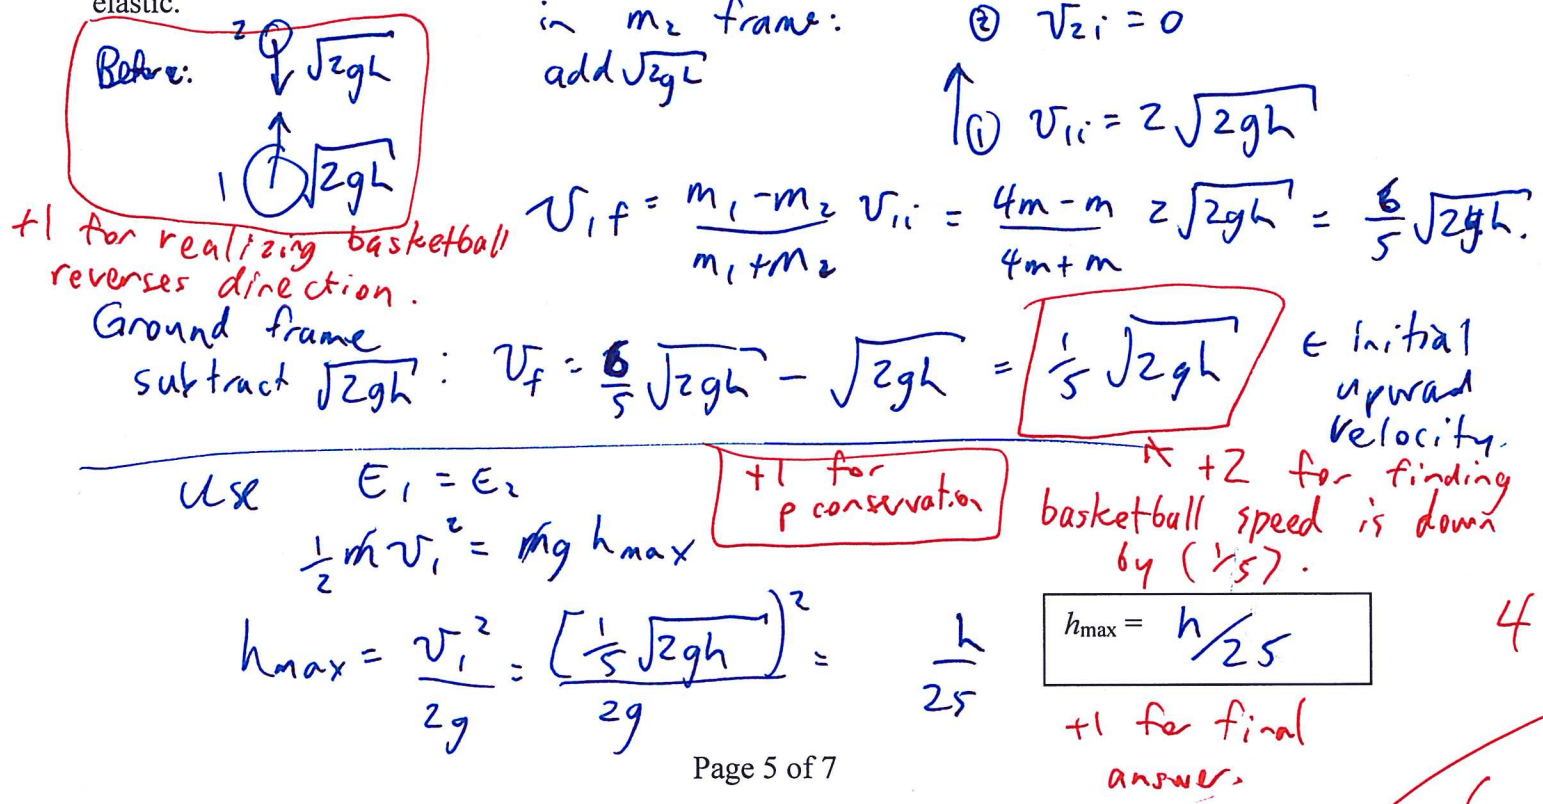 elastic.
Before: 2 √2gh
1 √2gh
in m₂ frame:
add √2gh
② v₂ᵢ = 0
① v₁ᵢ = 2√2gh
v₁f = (m₁ - m₂)/(m₁ + m₂) v₁ᵢ = (4m - m)/(4m + m) 2√2gh = 6/5 √2gh.
+1 for realizing basketball
reverses direction.
Ground frame
subtract √2gh : vf = 6/5 √2gh - √2gh = 1/5 √2gh
← initial
upward
velocity.
use E₁ = E₂
+1 for
p conservation
+2 for finding
basketball speed is down
by (1/5).
1/2 m v₁² = mg hmax
hmax = v₁²/2g = (1/5 √2gh)²/2g = h/25
hmax = h/25
4
+1 for final
answer.
Page 5 of 7